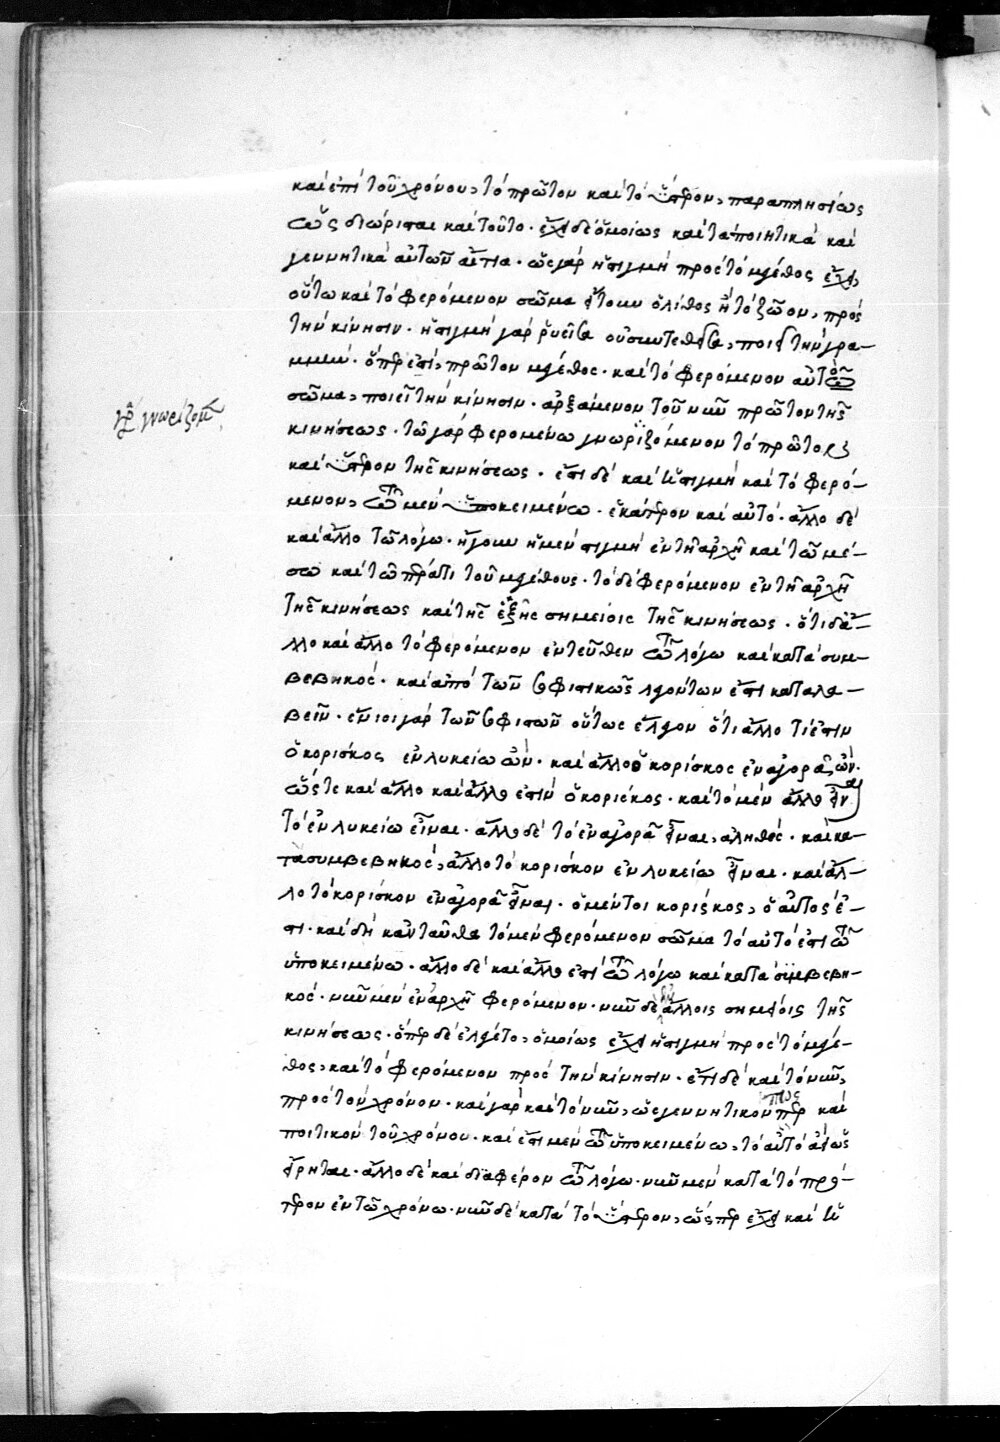 καὶ ἐπὶ τοῦ χρόνου, τὸ πρῶτον καὶ τὸ ὕστερον, παραπλησίως
ὡς διώρισται καὶ τοῦτο. ἔχει δὲ ὁμοίως καὶ τὰ ποιητικὰ καὶ
γεννητικὰ αὐτῶν αἴτια. ὡς γὰρ ἡ στιγμὴ πρὸς τὸ μέγεθος ἔχει,
οὕτω καὶ τὸ φερόμενον σῶμα ἤτοι ὁ λίθος ἢ τὸ ζῶον, πρὸς
τὴν κίνησιν. ἡ στιγμὴ γὰρ ῥυεῖσα οὐ συντεθεῖσα, ποιεῖ τὴν γρα-
μμήν. ὅπερ ἐστὶ, πρῶτον μέγεθος. καὶ τὸ φερόμενον αὐτὸ
σῶμα, ποιεῖ τὴν κίνησιν. ἀρξάμενον τοῦ νῦν πρῶτον τῆς
γρ γνωρίζομεν
κινήσεως. τῷ γὰρ φερομένω γνωριζόμενον τὸ πρῶτον
καὶ ὕστερον τῆς κινήσεως. ἔστι δὲ καὶ ἡ στιγμὴ καὶ τὸ φερό-
μενον, τῶ μὲν ὑποκειμένω. ἑκάτερον καὶ αὐτό. ἄλλο δὲ
καὶ ἄλλο τῶ λόγω. ἤγουν ἡ μὲν στιγμὴ ἐν τῆ ἀρχῆ καὶ τῶ μέ-
σω καὶ τῶ πέρατι τοῦ μεγέθους. τὸ δὲ φερόμενον ἐν τῆ ἀρχῆ
τῆς κινήσεως καὶ τῆς ἑξῆς σημείοις τῆς κινήσεως. ὅτι δ' ἄ-
λλο καὶ ἄλλο τὸ φερόμενον ἐντεῦθεν τῶ λόγω καὶ κατὰ συμ-
βεβηκός. καὶ ἀπὸ τῶν σοφιστικῶς λεγόντων ἔστι καταλα-
βεῖν. ἔνιοι γὰρ τῶν σοφιστῶν οὕτως ἔλεγον ὅτι ἄλλο τί ἐστιν
ὁ κορίσκος ἐν λυκείω ὤν. καὶ ἄλλο ὁ κορίσκος ἐν ἀγορᾶ ὤν.
ὥστε καὶ ἄλλο καὶ ἄλλο ἐστὶν ὁ κορίσκος. καὶ τὸ μὲν ἄλλο εἶναι
τὸ ἐν λυκείω εἶναι. ἄλλο δὲ τὸ ἐν ἀγορᾶ εἶναι, ἀληθές. καὶ κα-
τὰ συμβεβηκός, ἄλλο τὸ κορίσκον ἐν λυκείω εἶναι. καὶ ἄλ-
λο τὸ κορίσκον ἐν ἀγορᾶ εἶναι. ὁ μέντοι κορίσκος, ὁ αὐτός ἐ-
στι. καὶ δὴ κἀνταῦθα τὸ μὲν φερόμενον σῶμα τὸ αὐτό ἐστι τῶ
ὑποκειμένω. ἄλλο δὲ καὶ ἄλλο ἐστὶ τῶ λόγω καὶ κατὰ συμβεβη-
κός. νῦν μὲν ἐν ἀρχῆ φερόμενον. νῦν δὲ ἐν ἄλλοις σημείοις τῆς
κινήσεως. ὅπερ δὲ ἐλέγετο, ὁμοίως ἔχει ἡ στιγμὴ πρὸς τὸ μέγε-
θος, καὶ τὸ φερόμενον πρὸς τὴν κίνησιν. ἔτι δὲ καὶ τὸ νῦν,
πρὸς τὸν χρόνον. καὶ γὰρ καὶ τὸ νῦν, ὡς γεννητικόν πως καὶ
ποιτικὸν τοῦ χρόνου. καὶ ἔστι μὲν τῶ ὑποκειμένω, τὸ αὐτὸ ἀεὶ ὡς
εἴρηται. ἄλλο δὲ καὶ διαφέρον τῶ λόγω. νῦν μὲν κατὰ τὸ πρό-
τερον ἐν τῶ χρόνω. νῦν δὲ κατὰ τὸ ὕστερον, ὥσπερ ἔχει καὶ ἡ